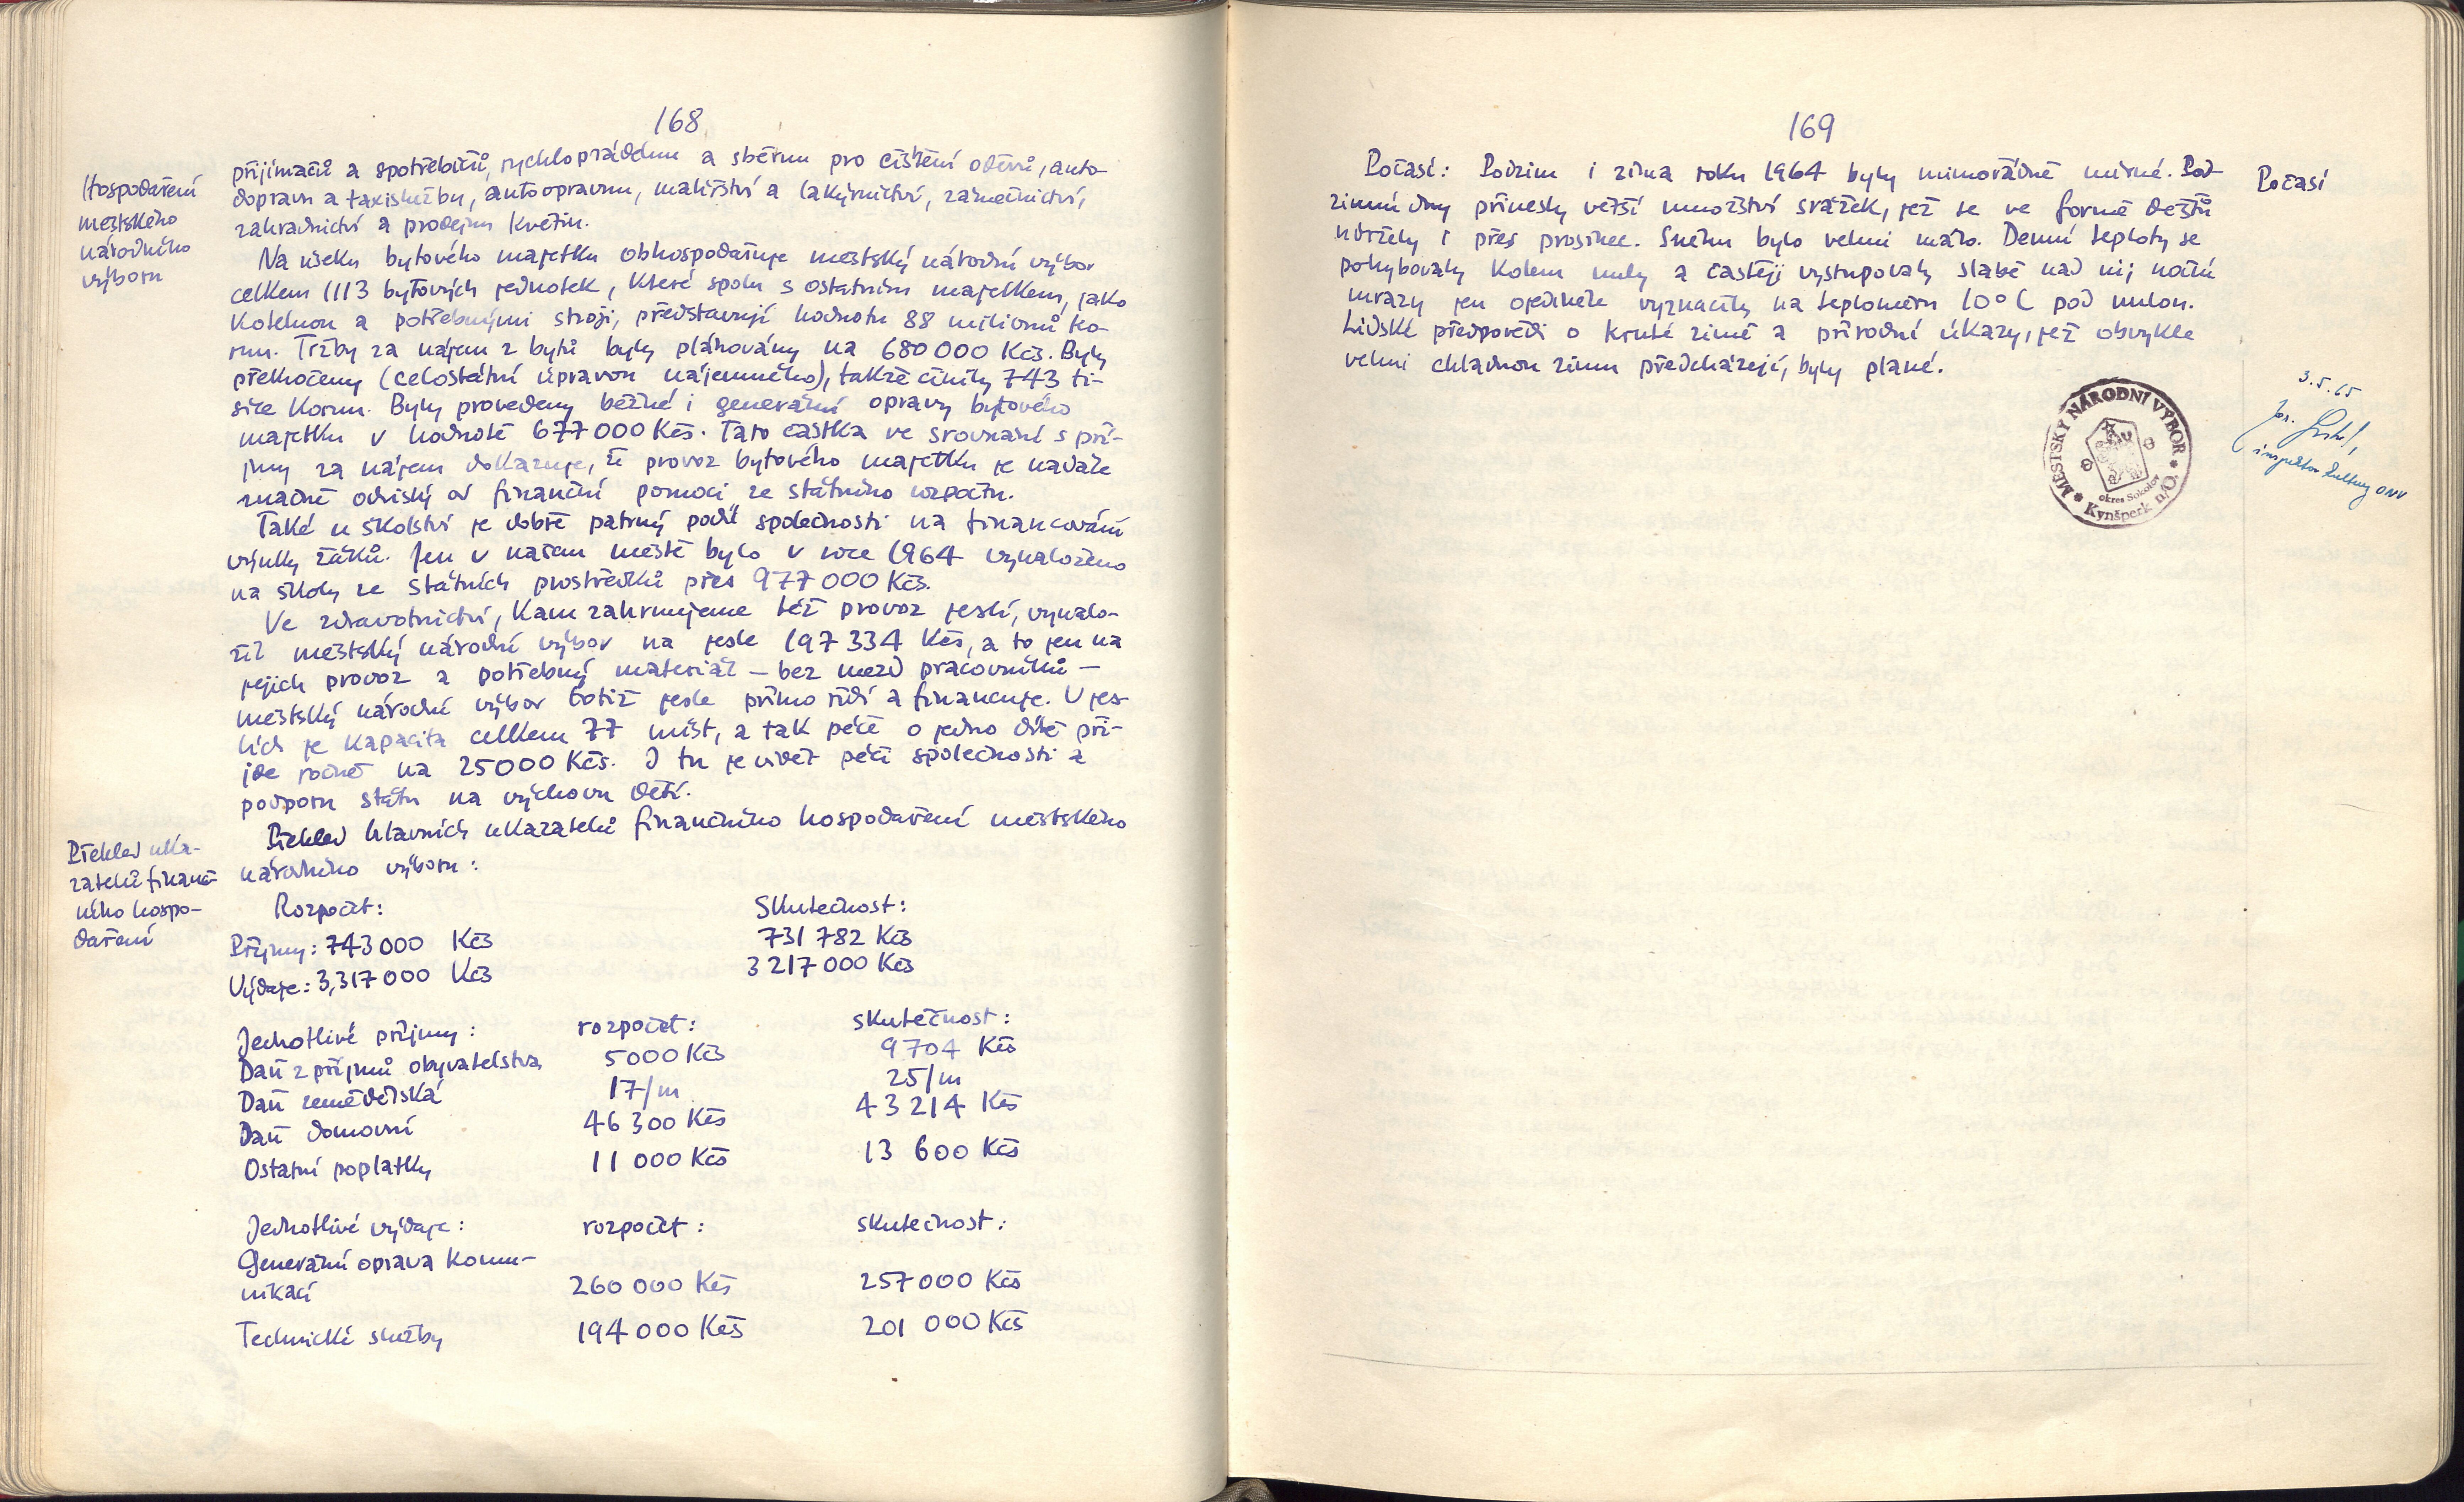 168
Hospodaření
městského
národního
výboru
přijímačů a spotřebičů, rychloprádelnu a sběrnu pro čištění oděvů, auto-
dopravu a taxislužbu, autoopravnu, malířství a lakýrnictví, zámečnictví,
zahradnictví a prodejnu květin.
Na úseku bytového majetku obhospodařuje městský národní výbor
celkem 1113 bytových jednotek, které spolu s ostatním majetkem, jako
kotelnou a potřebnými stroji, představují hodnotu 88 milionů ko-
run. Tržby za nájem z bytů byly plánovány na 680 000 Kčs. Byly
překročeny (celostátní úpravou nájemného), takže činily 743 ti-
síce korun. Byly provedeny běžné i generální opravy bytového
majetku v hodnotě 677 000 Kčs. Tato částka ve srovnání s pří-
jmy za nájem dokazuje, že provoz bytového majetku je nadále
značně odvislý od finanční pomoci ze státního rozpočtu.
Také u školství je dobře patrný podíl společnosti na financování
výuky žáků. Jen v našem městě bylo v roce 1964 vynaloženo
na školy ze státních prostředků přes 977 000 Kčs.
Ve zdravotnictví, kam zahrnujeme též provoz jeslí, vynalo-
žil městský národní výbor na jesle 197 334 Kčs, a to jen na
jejich provoz a potřebný materiál – bez mezd pracovníků –
městský národní výbor totiž jesle přímo řídí a financuje. V jes-
lích je kapacita celkem 77 míst, a tak péče o jedno dítě při-
jde ročně na 25000 Kčs. I tu je vidět péči společnosti a
podporu státu na výchovu dětí.
Přehled uka-
zatelů finanč-
ního hospo-
daření
Přehled hlavních ukazatelů finančního hospodaření městského
národního výboru:
Rozpočet: Skutečnost:
Příjmy: 743 000 Kčs 731 782 Kčs
Výdaje: 3,317 000 Kčs 3 217 000 Kčs
Jednotlivé příjmy: rozpočet: skutečnost:
Daň z příjmů obyvatelstva 5000 Kčs 9704 Kčs
Daň zemědělská 17/m 25/m
Daň domovní 46 300 Kčs 43 214 Kčs
Ostatní poplatky 11 000 Kčs 13 600 Kčs
Jednotlivé výdaje: rozpočet: skutečnost:
Generální oprava komu-
nikací 260 000 Kčs 257 000 Kčs
Technické služby 194 000 Kčs 201 000 Kčs
169
Počasí: Podzim i zima roku 1964 byly mimořádně mírné. Pod-
zimní dny přinesly větší množství srážek, jež se ve formě deště
udržely i přes prosinec. Sněhu bylo velmi málo. Denní teploty se
pohybovaly kolem nuly a častěji vystupovaly slabě nad ni; noční
mrazy jen ojediněle vyznačily na teploměru 10°C pod nulou.
Lidské předpovědi o kruté zimě a přírodní úkazy, jež obvykle
velmi chladnou zimu předcházejí, byly plané.
Počasí
MĚSTSKÝ NÁRODNÍ VÝBOR
okres Sokolov
Kynšperk n/O.
3.5.65
Jos.
inspektor kultury ONV